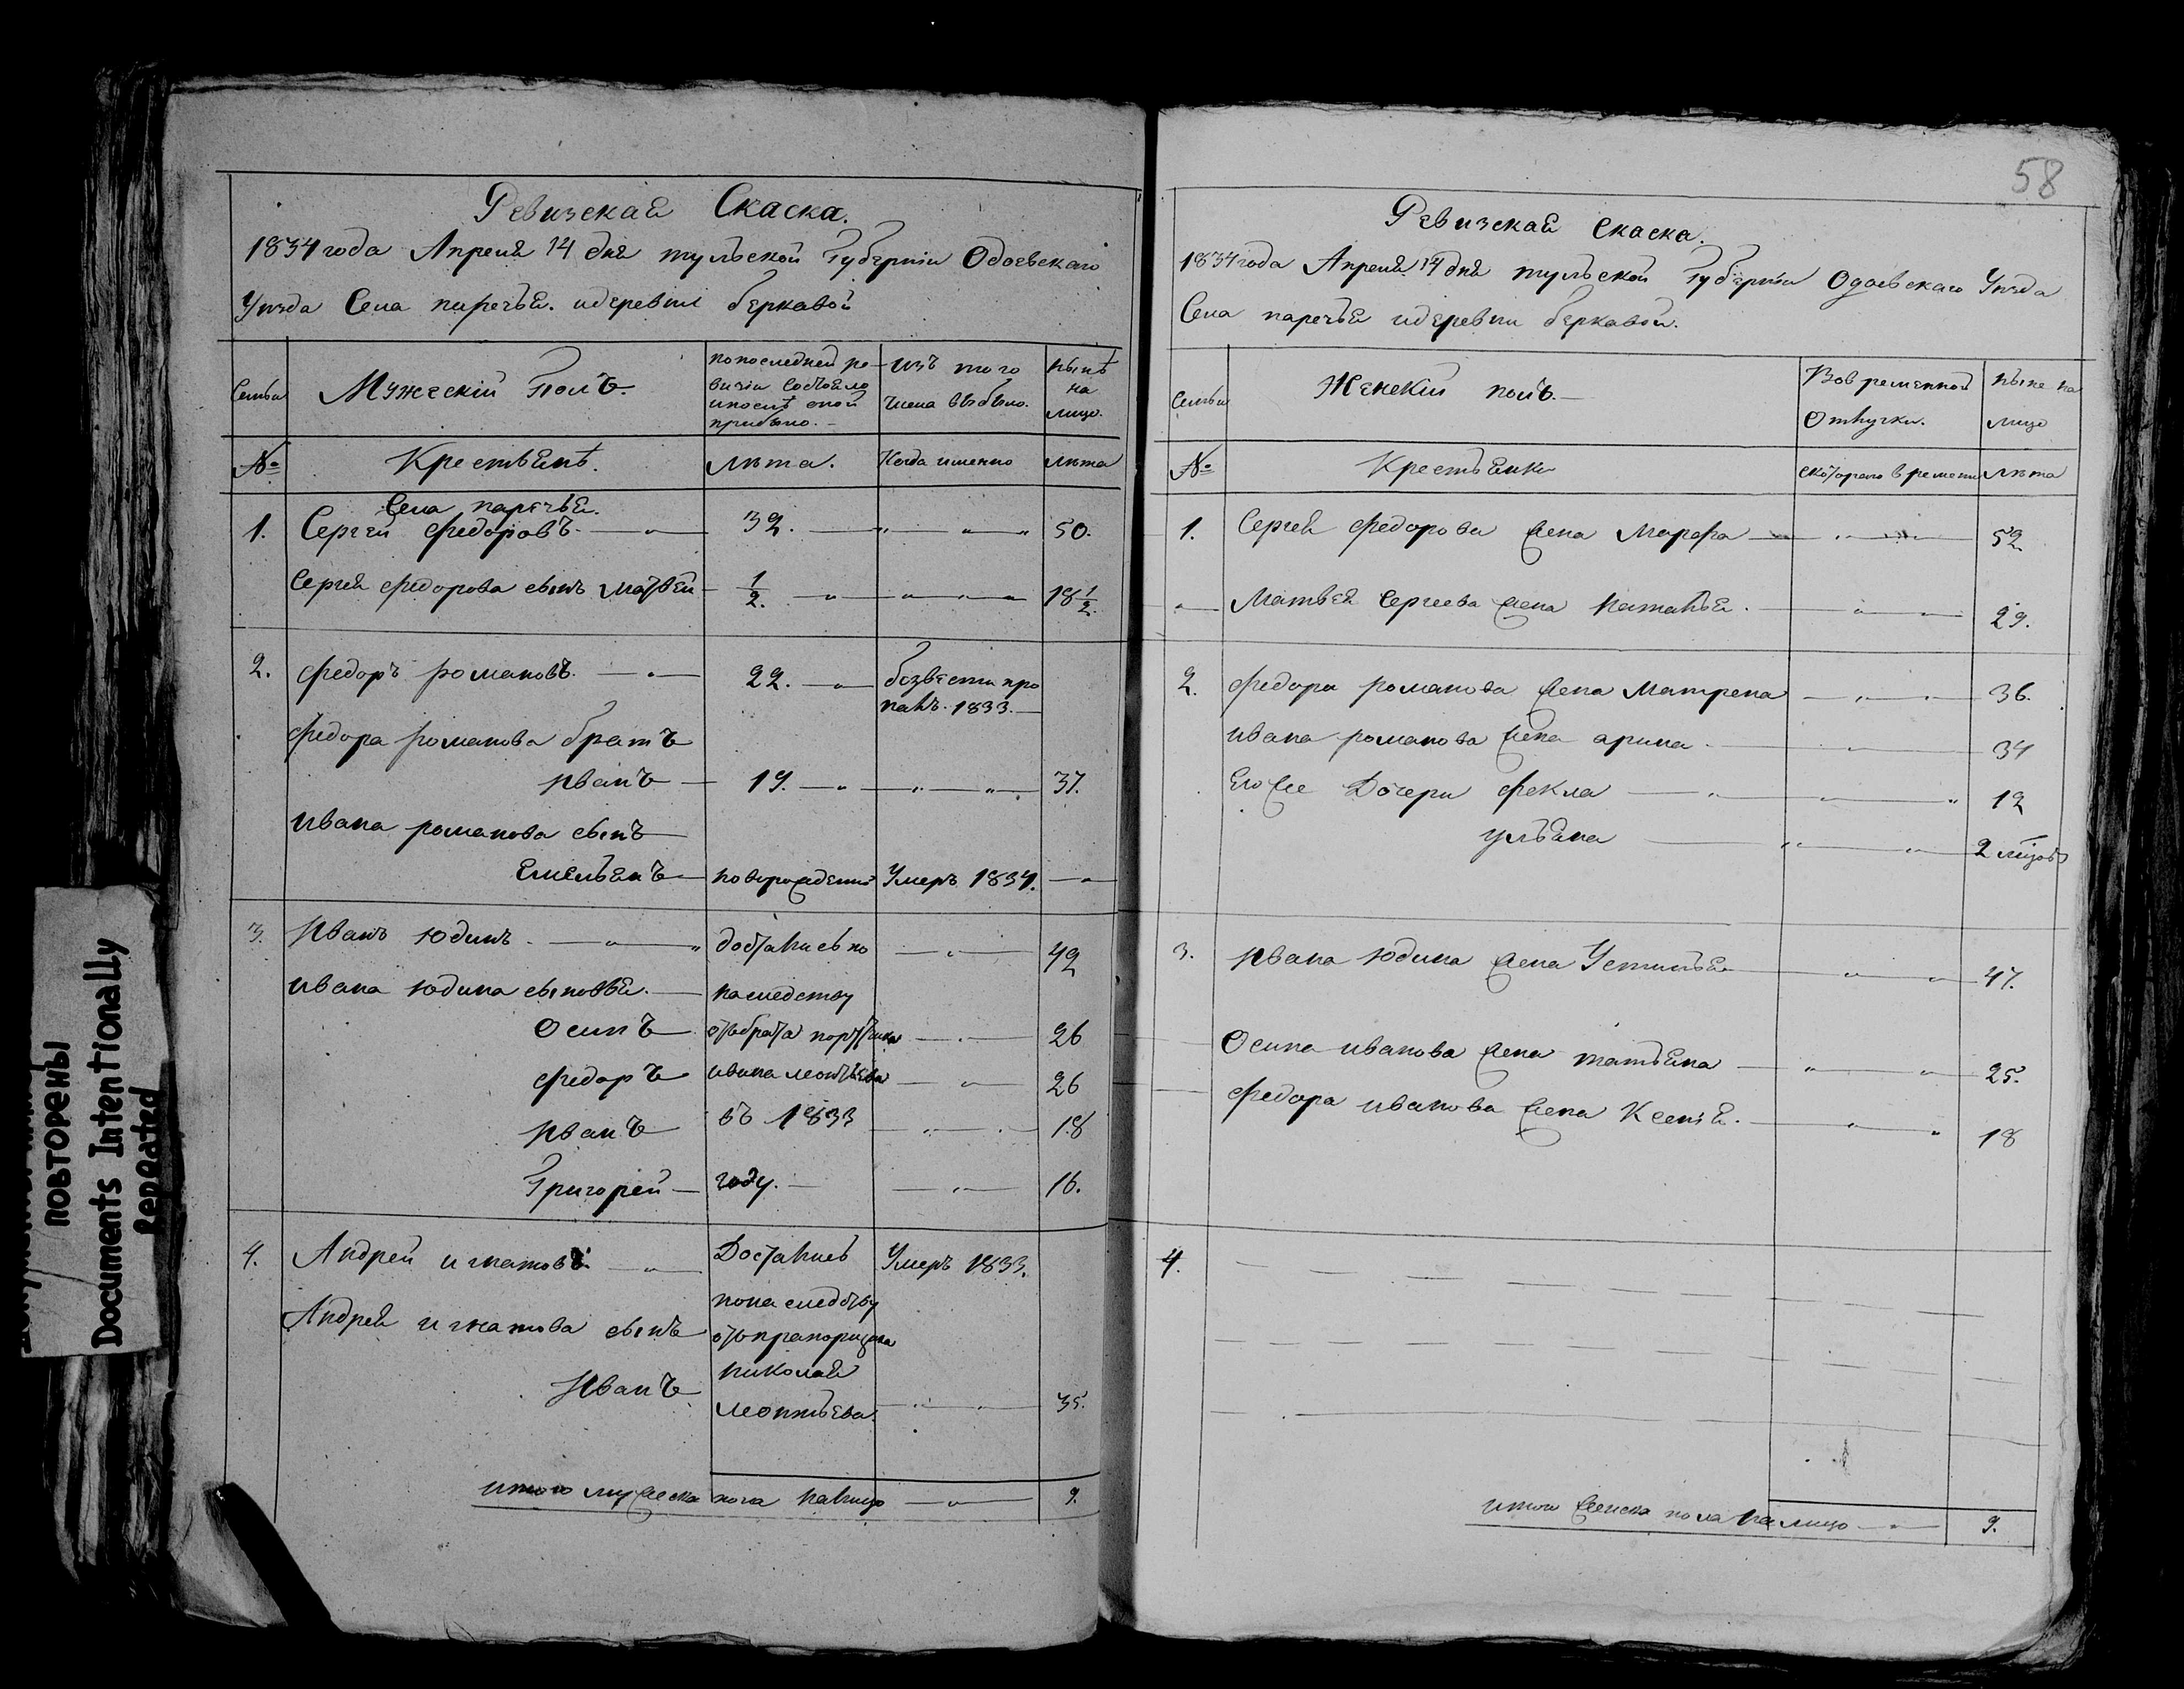 Ревизская Скаска.
1834 года Апреля 14 дня тульской Губернiи Одоевскаго
Уѣзда Села паречья. идеревни беркавой
Семьи
Мужескiй Полъ.
попоследней ревизiи состояло ипослѣ оной прибыло.
изъ того числа выбыло.
нынѣ на лицо.
№
Крестьянѣ.
лѣта.
Когда имянно
лѣта
Села паречья.
1. Сергей Федоровъ. 32. 50.
Сергея Федорова сынъ Матвей 1/2. 18 1/2.
2. Федоръ романовъ. 22. безвести про
палъ. 1833.
Федора романова братъ
Иванъ 19. 37.
ивана романова сынъ
Емельянъ новорожденой Умеръ 1834.
3. Иванъ Юдинъ. достались по 49
ивана Юдина сыновья. наследству
Осипъ отъбрата порутчика 26
Федоръ ивана леонтьева 26
Иванъ въ 1833 18
Григорей году. 16.
4. Андрей игнатовъ. Достались Умеръ 1833.
Андрея игнатова сынъ понаследству
отъпрапорщика
Иванъ николая
леонтьева. 35.
итого мужеска пола налицо 9.
58
Ревизская Скаска.
1834 года Апреля 14 дня тульской Губернiи Одоевскаго Уѣзда
Села паречья идеревни беркавой.
Семьи
Женскiй полъ.
Вовременной Отлучки.
ныне на лицо
№
Крестьянки
скоторого времени
лѣта
1. Сергея Федорова жена Марфа 52.
Матвея Сергеева жена Наталья. 29.
2. Федора романова жена Матрена 36.
ивана романова жена арина. 34
Его же Дочери Фекла 12
ульяна 2 мѣцовъ
3. Ивана Юдина жена Устинья 47.
Осипа иванова жена татьяна 25.
Федора иванова жена Ксенiя. 18
4.
итого женска пола на лицо 9.
ПОВТОРЕНЫ
Documents Intentionally
Repeated